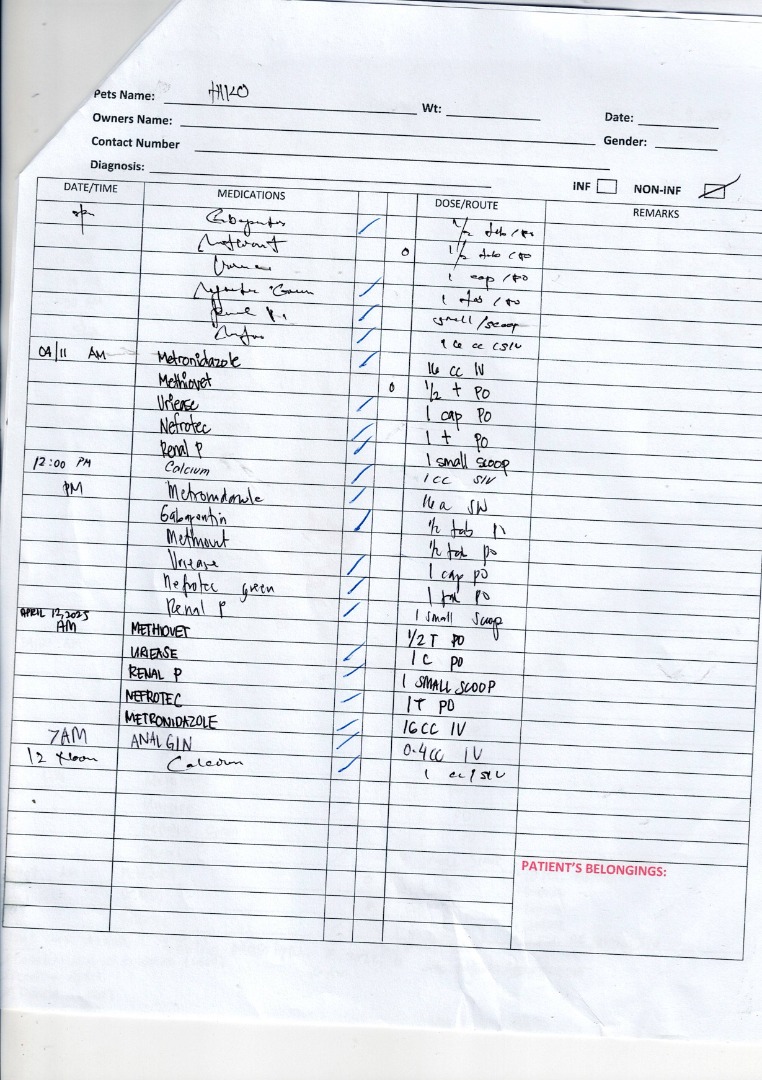 Pets Name: HIKO Wt: Date:
Owners Name: Gender:
Contact Number
Diagnosis: INF NON-INF
DATE/TIME MEDICATIONS DOSE/ROUTE REMARKS
1/2 tab / PO
0 1/2 tab / PO
1 cap / PO
1 tab / PO
Renal P. small / scoop
cc
04/11 AM Metronidazole 16 cc IV
Methiovet 0 1/2 t PO
Uriease 1 cap PO
Nefrotec 1 t PO
Renal P 1 small scoop
12:00 PM Calcium 1 cc SIV
PM Metronidazole 16
Gabapentin 1/2 tab
Methiovet 1/2 tab po
Uriease 1 cap po
Nefrotec green 1 tab po
Renal P 1 small scoop
APRIL 12, 2025
AM METHIOVET 1/2 T PO
URIEASE 1 C PO
RENAL P 1 SMALL SCOOP
NEFROTEC 1T PO
METRONIDAZOLE 16CC IV
7AM ANALGIN 0.4cc IV
12 Noon Calcium 1 cc / SIV
PATIENT'S BELONGINGS: